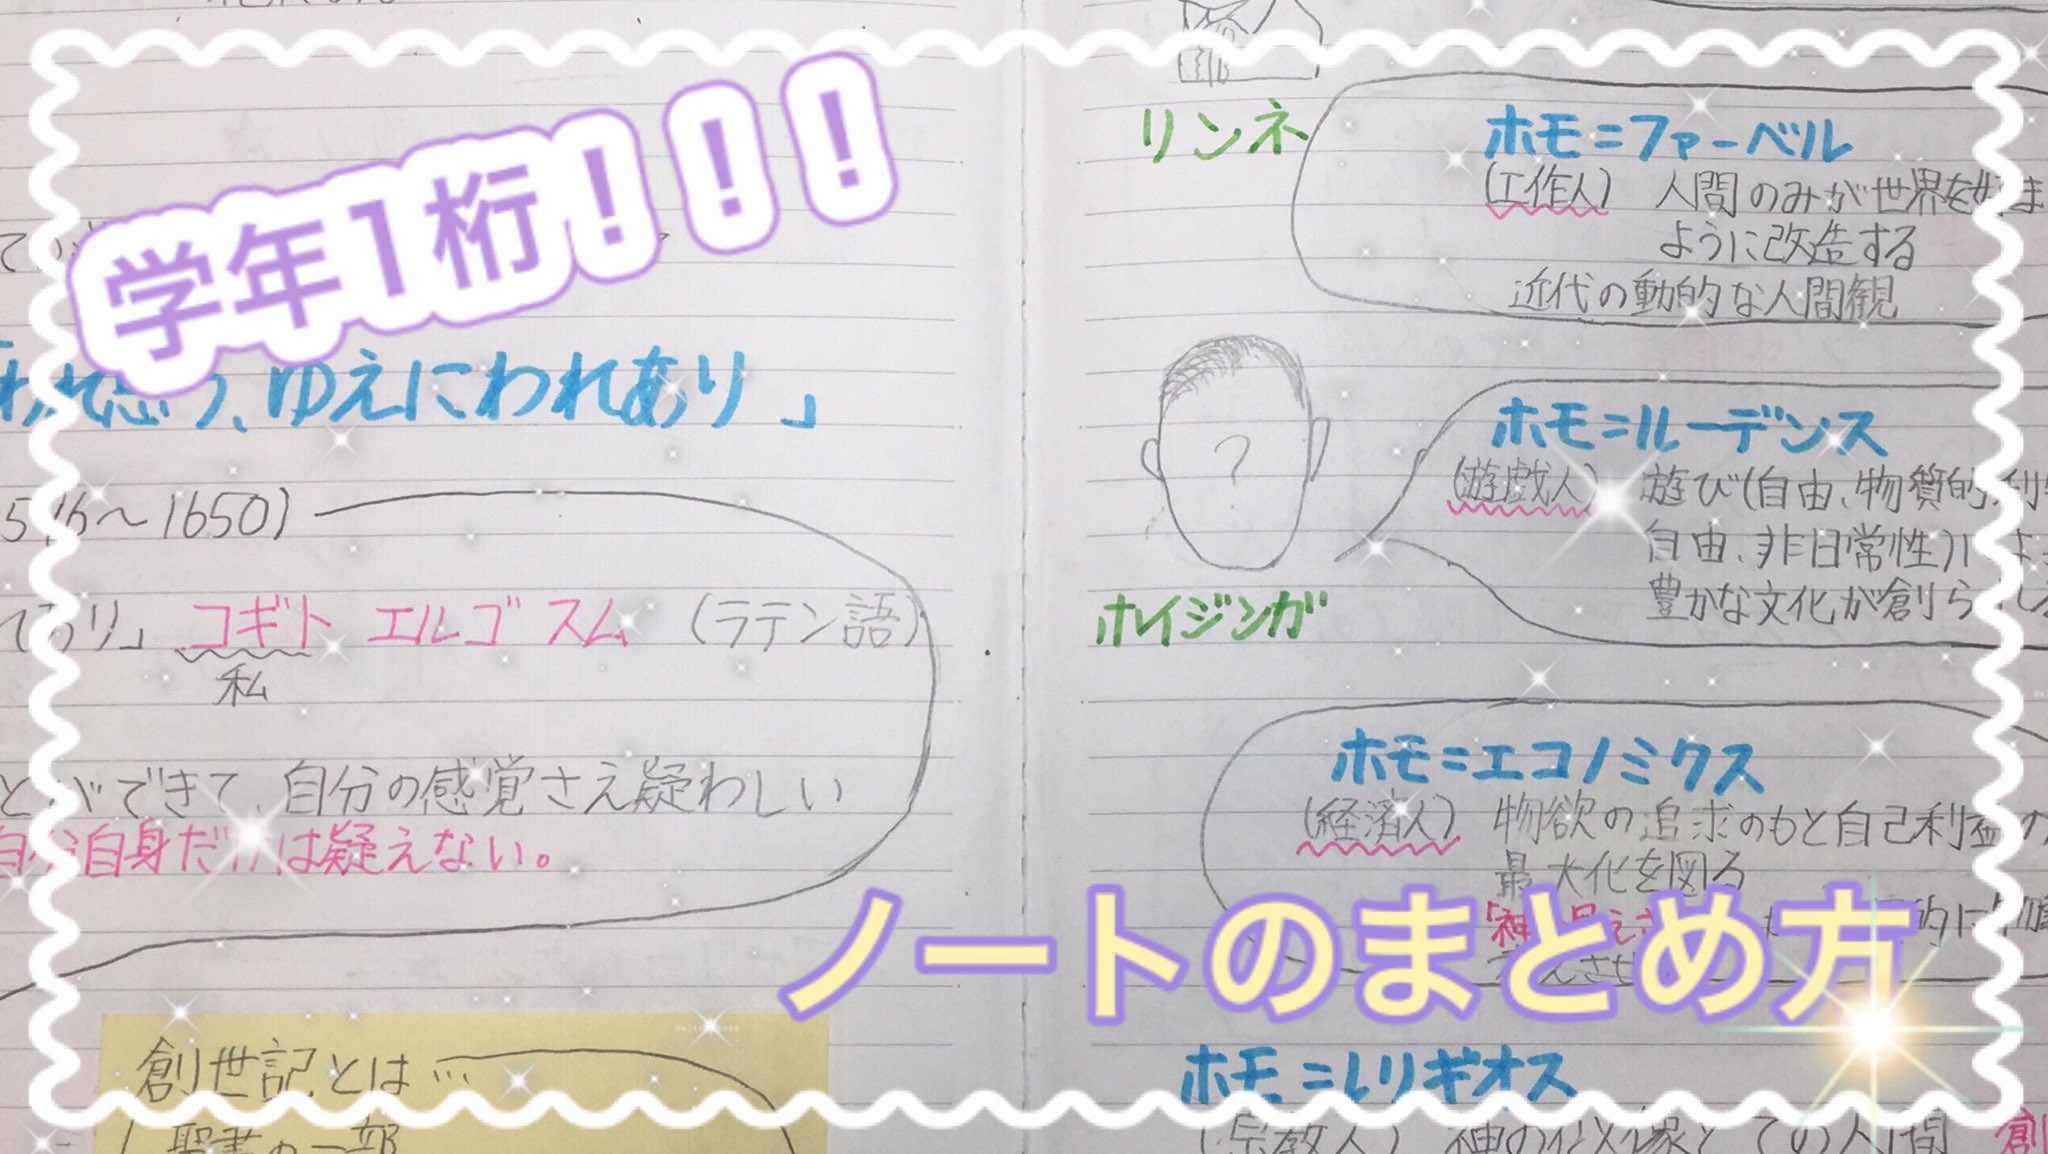 学年1桁！！！
われ思う、ゆえにわれあり」
～1650)
あり」 コギト エルゴ スム (ラテン語)
私
とができて、自分の感覚さえ疑わしい
自分自身だけは疑えない。
創世記とは…
聖書の一部
リンネ
ホモ=ファーベル
(工作人) 人間のみが世界を
ように改造する
近代の動的な人間観
ホモ=ルーデンス
(遊戯人) 遊び(自由、物質的
自由、非日常性)
豊かな文化が創ら
?
ホイジンガ
ホモ=エコノミクス
(経済人) 物欲の追求のもと自己利益の
最大化を図る
ノートのまとめ方
ホモ=レリギオス
(宗教人) 神の 像としての人間